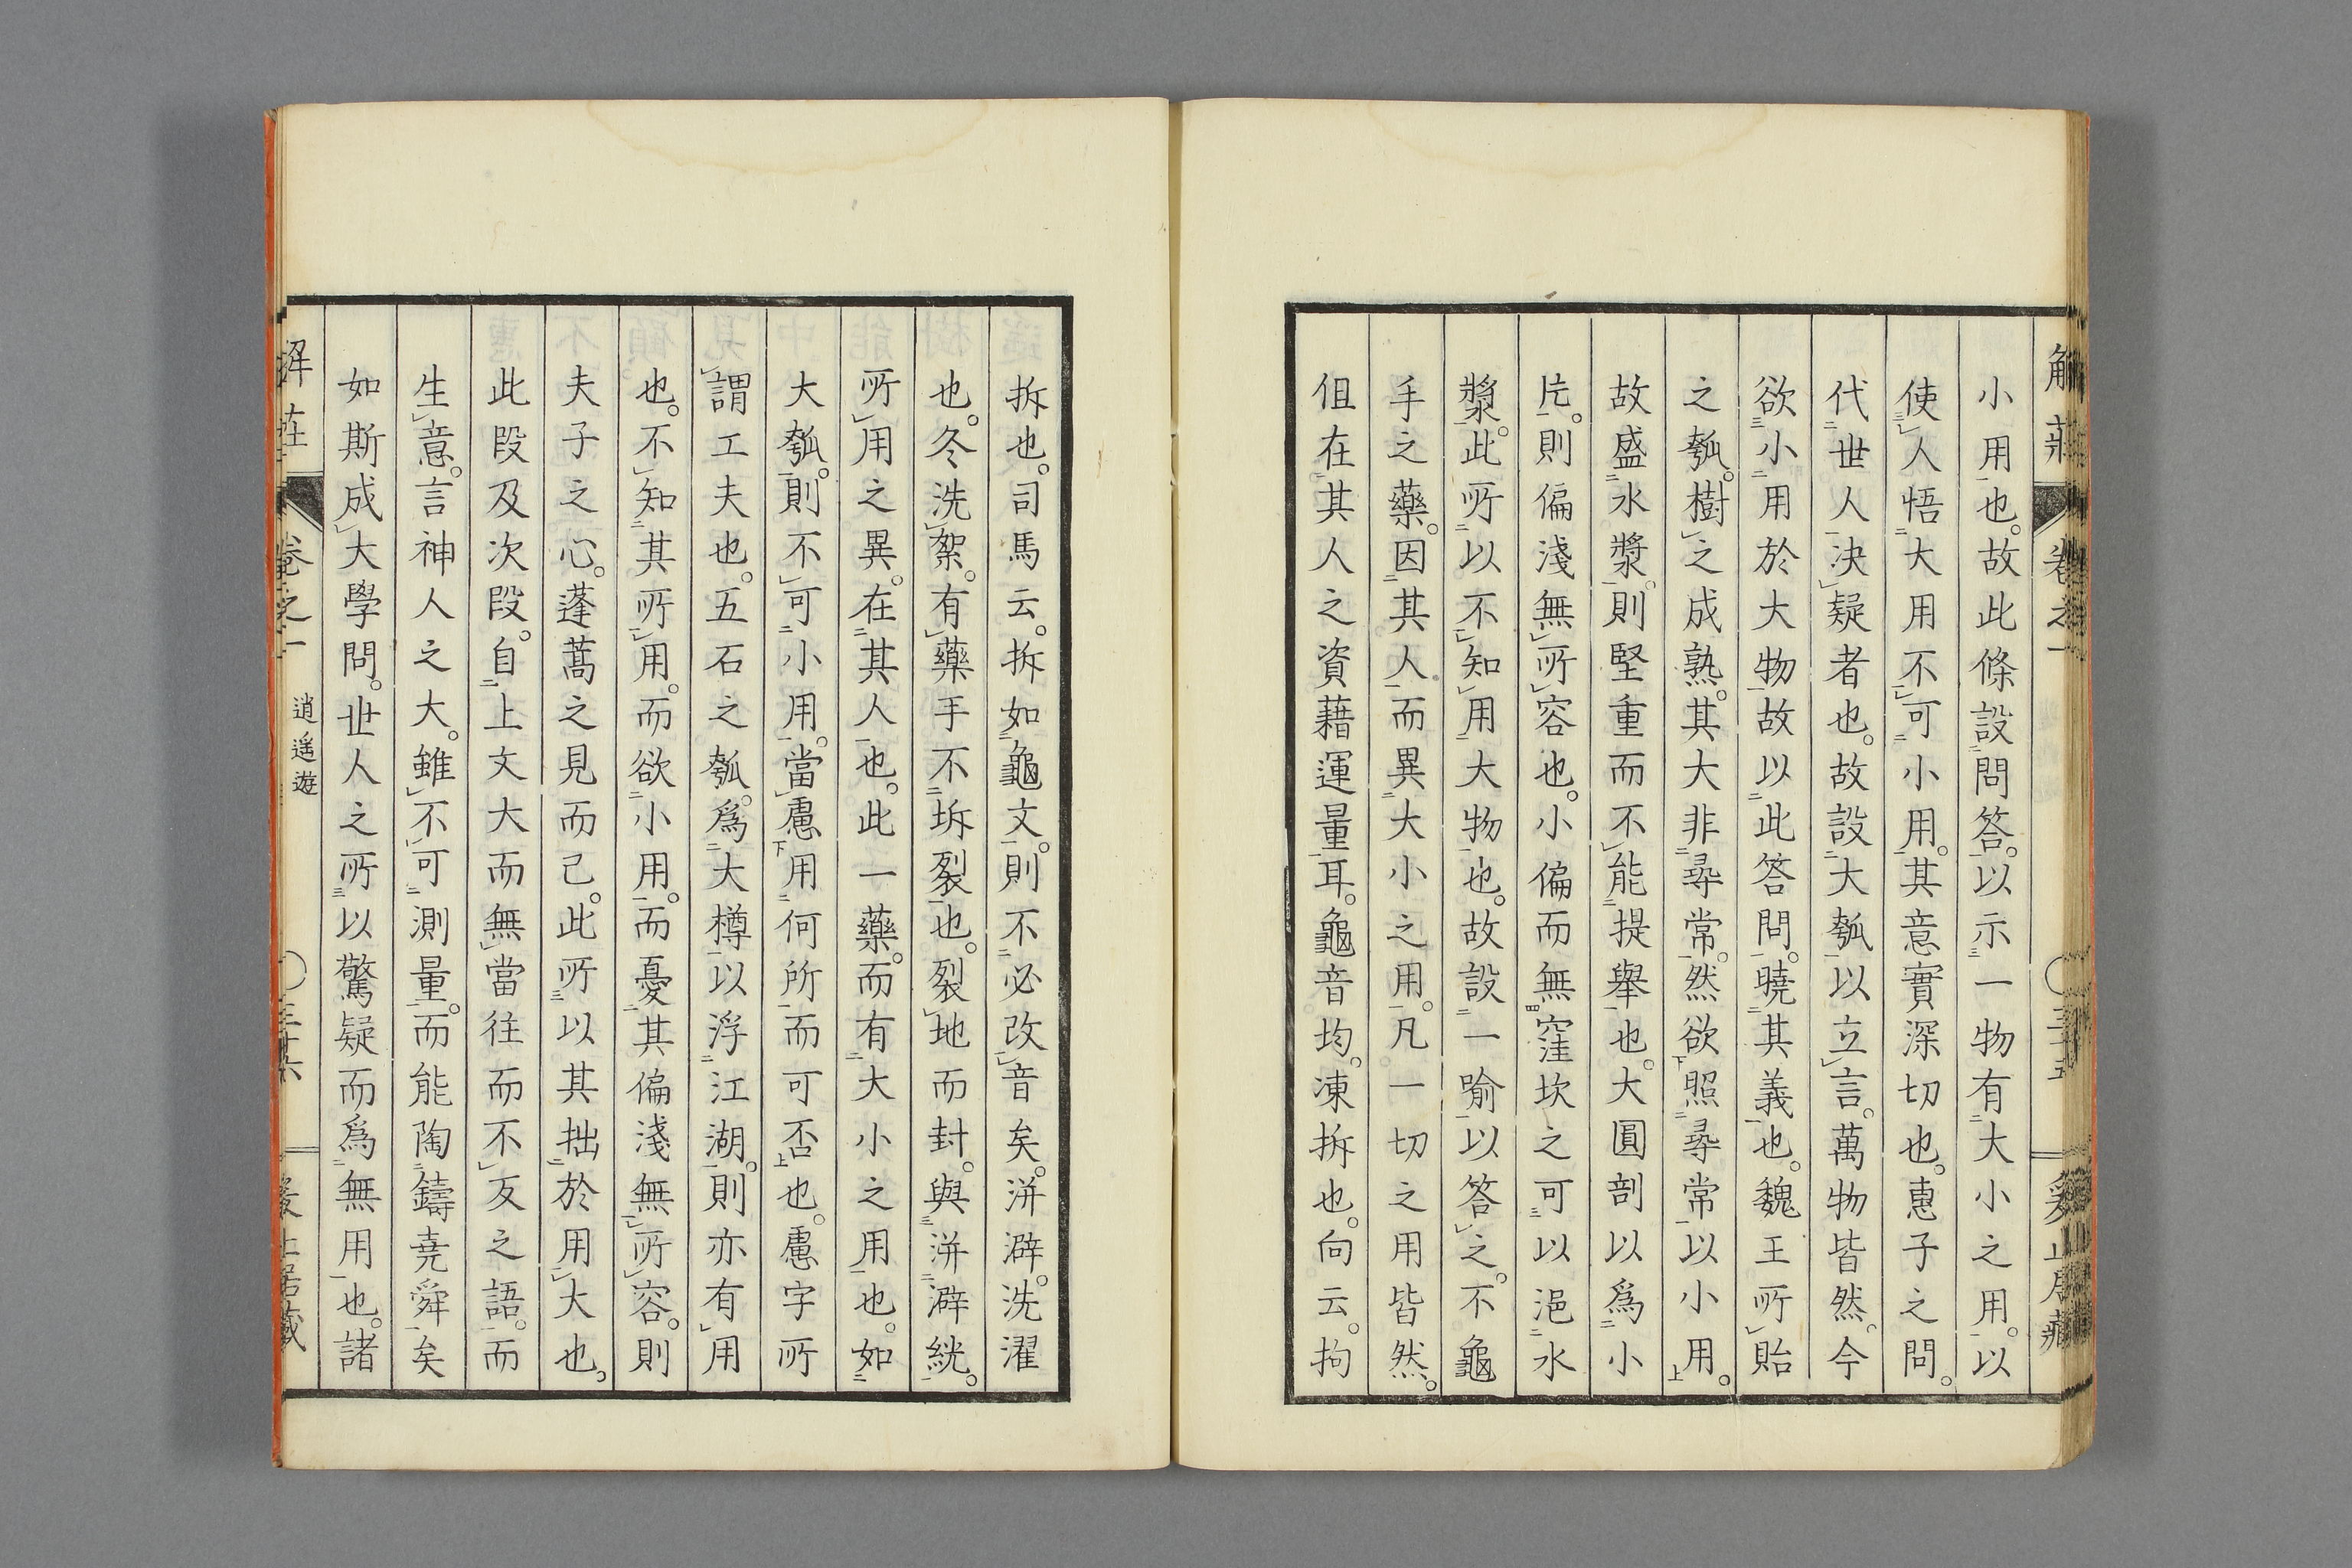 小用也。故此條設問答。以示一物有大小之用。以
使人悟大用不可小用。其意實深切也。惠子之問。
代世人决疑者也。故設大瓠以立言。萬物皆然。今
欲小用於大物故以此答問。曉其義也。魏王所貽
之瓠。樹之成熟。其大非尋常。然欲照尋常以小用。
故盛水漿。則堅重而不能提舉也。大圓剖以爲小
片。則偏淺無所容也。小偏而無窪坎之可以浥水
漿。此所以不知用大物也。故設一喻以答之。不龜
手之藥。因其人而異大小之用。凡一切之用皆然。
伹在其人之資藉運量耳。龜音均。凍拆也。向云。拘
拆也。司馬云。拆如龜文。則不必改音矣。洴澼。洗濯
也。冬洗絮。有藥手不坼裂也。裂地而封。與洴澼絖。
所用之異。在其人也。此一藥。而有大小之用也。如
大瓠。則不可小用。當慮用何所而可否也。慮字所
謂工夫也。五石之瓠。爲大樽以浮江湖。則亦有用
也。不知其所用。而欲小用。而憂其偏淺無所容。則
夫子之心。蓬蒿之見而己。此所以其拙於用大也。
此段及次段。自上文大而無當往而不反之語。而
生意。言神人之大。雖不可測量。而能陶鑄堯舜矣
如斯成大學問。世人之所以驚疑而爲無用也。諸
解莊 卷之一 逍遙遊